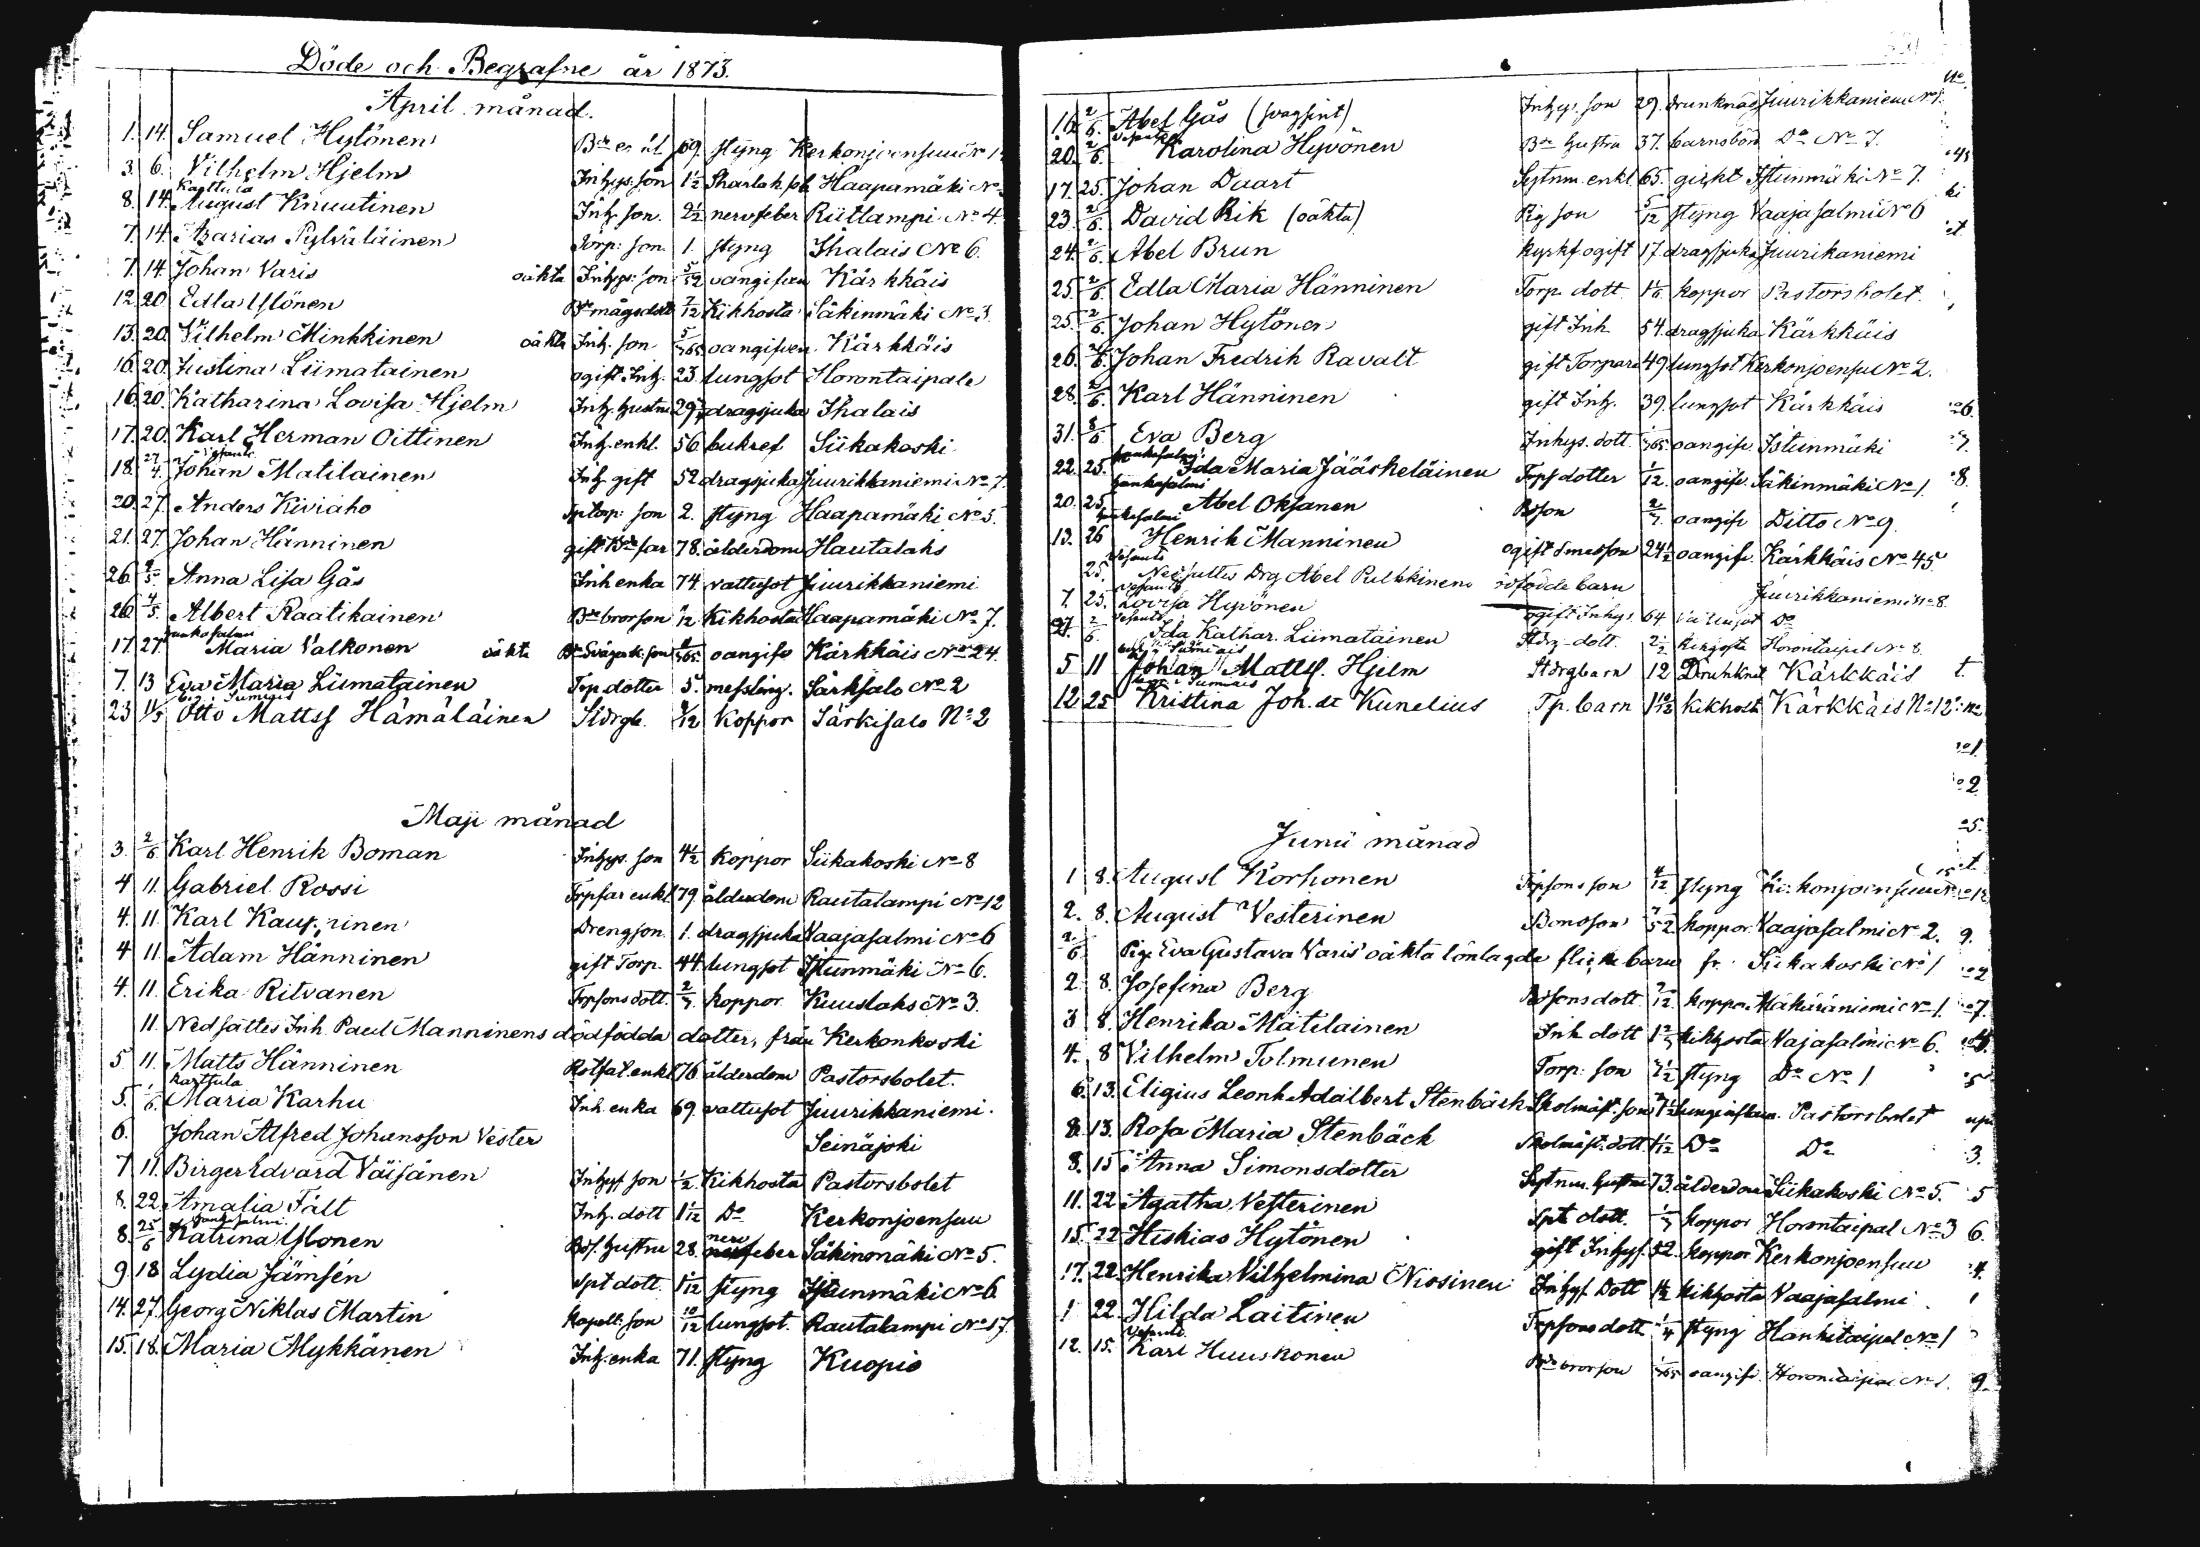 Döde och Begrafne år 1873.
April månad.
1. 14. Samuel Hytönen 69. styng Kerkonjoensuu
3. 6. Vilhelm Hjelm Inhys. son 1½ Skarlak. Haapamäki No
Karttula
8. 14. August Knuutinen Inh. son. 2½ nervfeber Riitlampi No 4.
7. 14. Azarias Pylväläinen Torp. son 1. styng Ihalais No 6.
7. 14. Johan Varis oäkta Inhys. son 5/52 oangifven Kärkkäis
12 20. Edla Ylönen Bde mågsdott 7/12 Kikhosta Säkinmäki No 3.
13. 20. Vilhelm Minkkinen oäkta Inh. son 5/365 oangifven Kärkkäis
16 20. Justina Liimatainen ogift Inh. 23 lungsot Horontaipale
16. 20. Katharina Lovisa Hjelm Inh. hustru 29 dragsjuka Ihalais
17. 20. Karl Herman Oittinen Inh. enkl. 56 bukref Siikakoski
18. 27/4 Johan Matilainen Inh gift 52 dragsjuka Juurikkaniemi No 7.
20. 27. Anders Kiviaho son 2. styng Haapamäki No 5.
21. 27. Johan Hänninen gift Bde far 78. ålderdom Hautalaks
26 4/5 Anna Lisa Gås Inh enka 74. vattusot Juurikkaniemi
26 4/5. Albert Raatikainen Bde brorson /12 Kikhosta Haapamäki No 7.
Hankasalmi
17 27 Maria Valkonen oäkta oangifv Kärkkäis No 24.
7. 13 Eva Maria Liimatainen Trp dotter 5. messling. Särkisalo No 2
begr. i Sumiais
23 11/5 Otto Mattss Hämäläinen Stdrgb. 9/12 Koppor Särkisalo No 2
Maji månad
3. 2/6 Karl Henrik Boman Inhys. son 4½ koppor Siikakoski No 8
4 11. Gabriel Rossi Trpfar enkl. 79. ålderdom Rautalampi No 12
4. 11. Karl Drengson. 1. dragsjuka Vaajasalmi No 6
4 11. Adam Hänninen gift Torp. 44 lungsot Istunmäki No 6.
4. 11. Erika Ritvanen Trpsons dott. 2/7. koppor Kuuslaks No 3.
11. Nedsattes Inh. Paul Manninens dödfödda dotter, från Kerkonkoski
5 11. Matts Hänninen Rotfat. enkl 76 ålderdom Pastorsbolet.
Karttula
5. 1/6. Maria Karhu Inh. enka 69. vattusot Juurikkaniemi.
6. Johan Alfred Johansson Vester Seinäjoki
7 11. Birger Edvard Väisänen Inhys son ½ Kikhosta Pastorsbolet
8. 22. Amalia Fält Inh. dott 1 1/12 Do Kerkonjoensuu
Hankasalmi
8. 25/6 Katrina Ylönen hustru 28. nervfeber Säkinmäki No 5.
9 18 Lydia Jämsén Spt dott. styng Istunmäki No 6
14. 27. Georg Niklas Martin Kapell. son 10/12 lungsot. Rautalampi No 17.
15. 18. Maria Mykkänen Inh. enka 71. styng Kuopio
16. 2/6. Abel Gås (svagsint) Inhys. son 29. drunknad Juurikkaniemi No 1.
20. 2/6 Karolina Hyvönen Bde hustru 37. barnsbörd Do No 7.
17. 25. Johan Daart Sytnm. enkl. 65. gickt Istunmäki No 7.
23 2/6. David Rik (oäkta) Pig son 5/12 styng Vaajasalmi No 6
24. 2/6. Abel Brun kyrkf ogift 17 dragsjuka Juurikaniemi
25. 2/6. Edla Maria Hänninen Torp. dott koppor Pastorsbolet.
25. 2/6. Johan Hytönen gift Inh. 54. dragsjuka Kärkkäis
26. 2/6. Johan Fredrik Ravalt gift Torpare 49 lungsot Kerkonjoensu No 2.
28. 2/6. Karl Hänninen gift Inh. 39. lungsot Kärkkäis
31. 8/6 Eva Berg Inhys. dott. /365 oangifv. Istunmäki
Hankasalmi
22. 25. Ida Maria Jääskeläinen Trps dotter 1/12. oangifv. Säkinmäki No 1.
Hankasalmi
20. 25. Abel Oksanen Bdson 2/7. oangifv Ditto No 9.
Hankasalmi
13. 26 Henrik Manninen ogift 24½ oangifv. Kärkkäis No 45
Vesanto
25. Nedsattes Drg Abel Pulkkinens dödfödde barn Juurikkaniemi No 8.
Vesanto
7. 25. Lovisa Hyvönen ogift Inhys. 64 vattusot Do
Vesanto
27. 2/6. Ida Kathar. Liimatainen Stdrg. dott. 2½ Horontaipal No 8.
begr. i Sumiais
5 11 Johan Mattss. Hjelm Stdrgbarn 12 Drunknat Kärkkäis
begr. i Sumiais
12. 25 Kristina Joh. dr Kunelius Tp. barn 1 10/12 kikhosta Kärkkäis No 12
Junii månad
1 8. August Korhonen Trpsons son 4/12 styng
2. 8. August Vesterinen Bondson 7/52 koppor Vaajasalmi No 2.
2/6 Pig. Eva Gustava Varis' oäkta lönlagde flickebarn fr. Siikakoski No 1
2. 8. Josefina Berg Bdsons dott. koppor. Mäkäräniemi No 1.
3 8. Henrika Matilainen Inh dott kikhosta Vajasalmi No 6.
4. 8 Vilhelm Tolmunen Torp. son styng Do No 1
6. 13. Eligius Leonh. Adalbert Stenbäck Skolmäst. son lunginflam. Pastorsbolet
8. 13. Rosa Maria Stenbäck Skolmäst. dott. Do Do
8. 15 Anna Simonsdotter Sytnm. hustru 73. ålderdom Siikakoski No 5.
11. 22 Agatha Vesterinen Spt dott. 1/7 koppor Horontaipal No 3
15. 22 Hiskias Hytönen gift Inhys. 52. koppor Kerkonjoensuu
17. 22. Henrika Vilhelmina Niosinen Inhys. Dott kikhosta Vaajasalmi
1 22. Hilda Laitinen Trpsons dott 1/4 styng Hanhitaipal No 1
Vesanto
12. 15. Karl Huuskonen Bde brorson 1/365 oangifv. Horontaipal No 1.